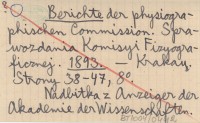 Berichte der physiogra-
phischen Commission. Spra-
wozdania Komisyi Fizyogra-
ficznej. 1893. — Krakau.
Strony 38-47, 8°.
Nadbitka z Anzeiger der
Akademie der Wissenschaften.